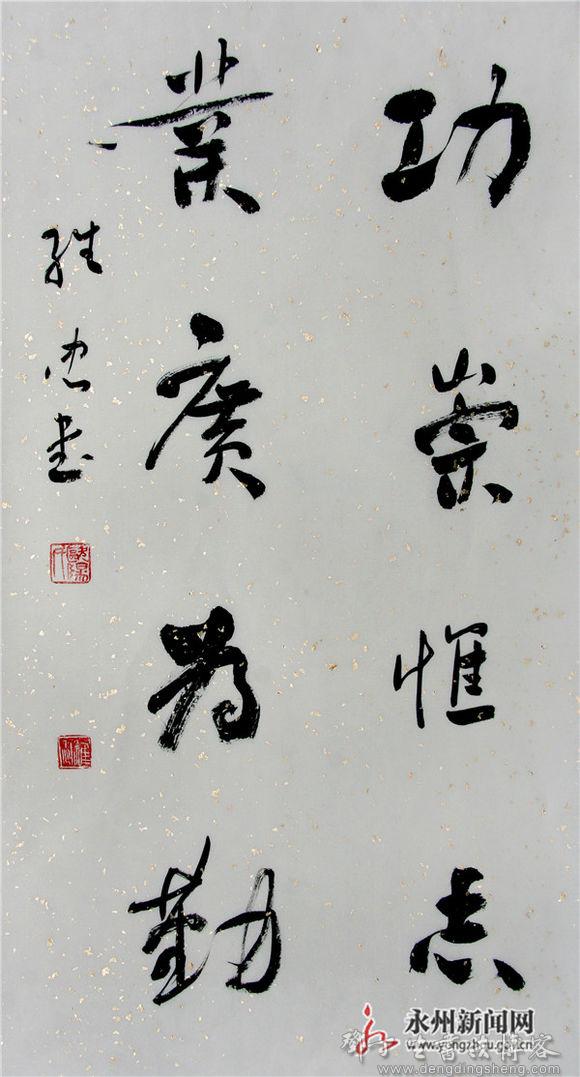 功崇惟志
業廣為勤
維忠書
永州新闻网
www.yongzhou.gov.cn
www.dengdingsheng.com